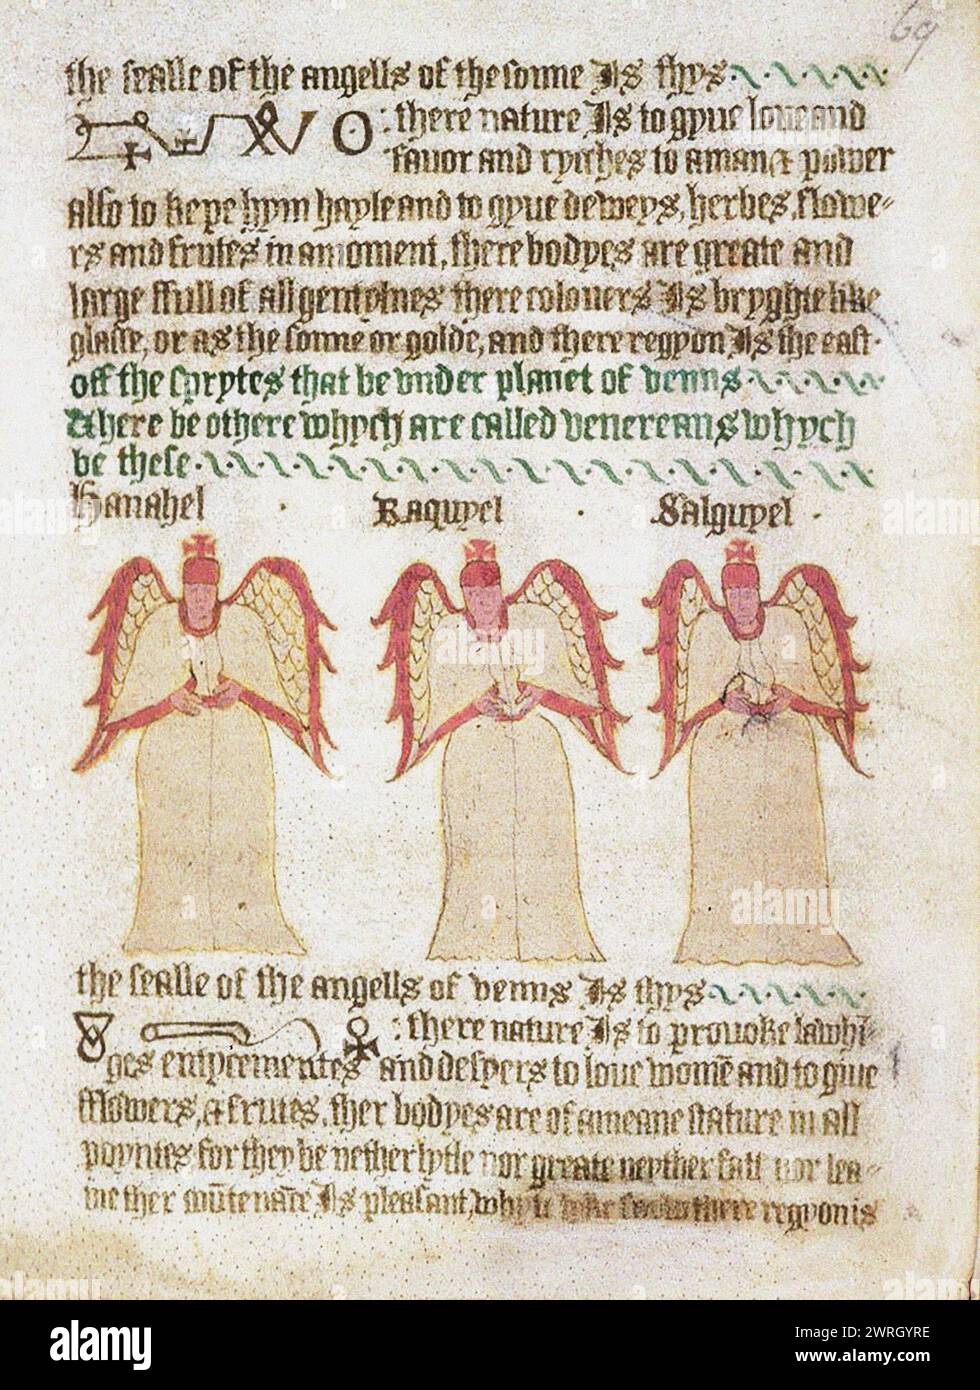 69
the sealle of the angells of the sonne Is thys
: there nature Is to gyue loue and
fauor and ryches to a man & power
also to kepe hym hayle and to gyue deweys, herbes, flowe=
rs and frutes in a moment, there bodyes are greate and
large ffull of all gentylnes there colouers Is bryghte like
glasse, or as the sonne or golde, and there regyon Is the east.
off the sprytes that be vnder planet of venus
There be othere whych are called venereans whych
be these
Hanahel . Raquyel . Salguyel .
the sealle of the angells of venus Is thys
: there nature Is to prouoke lawhī=
ges and desyers to loue womē and to giue
fflowers, & frutes, ther bodyes are of a meane stature in all
poyntes for they be nether lytle nor greate neyther fatt nor lea=
ne ther Is pleasant, whyte like snow there regyon is
alamy
Image ID: 2WRGYRE
www.alamy.com